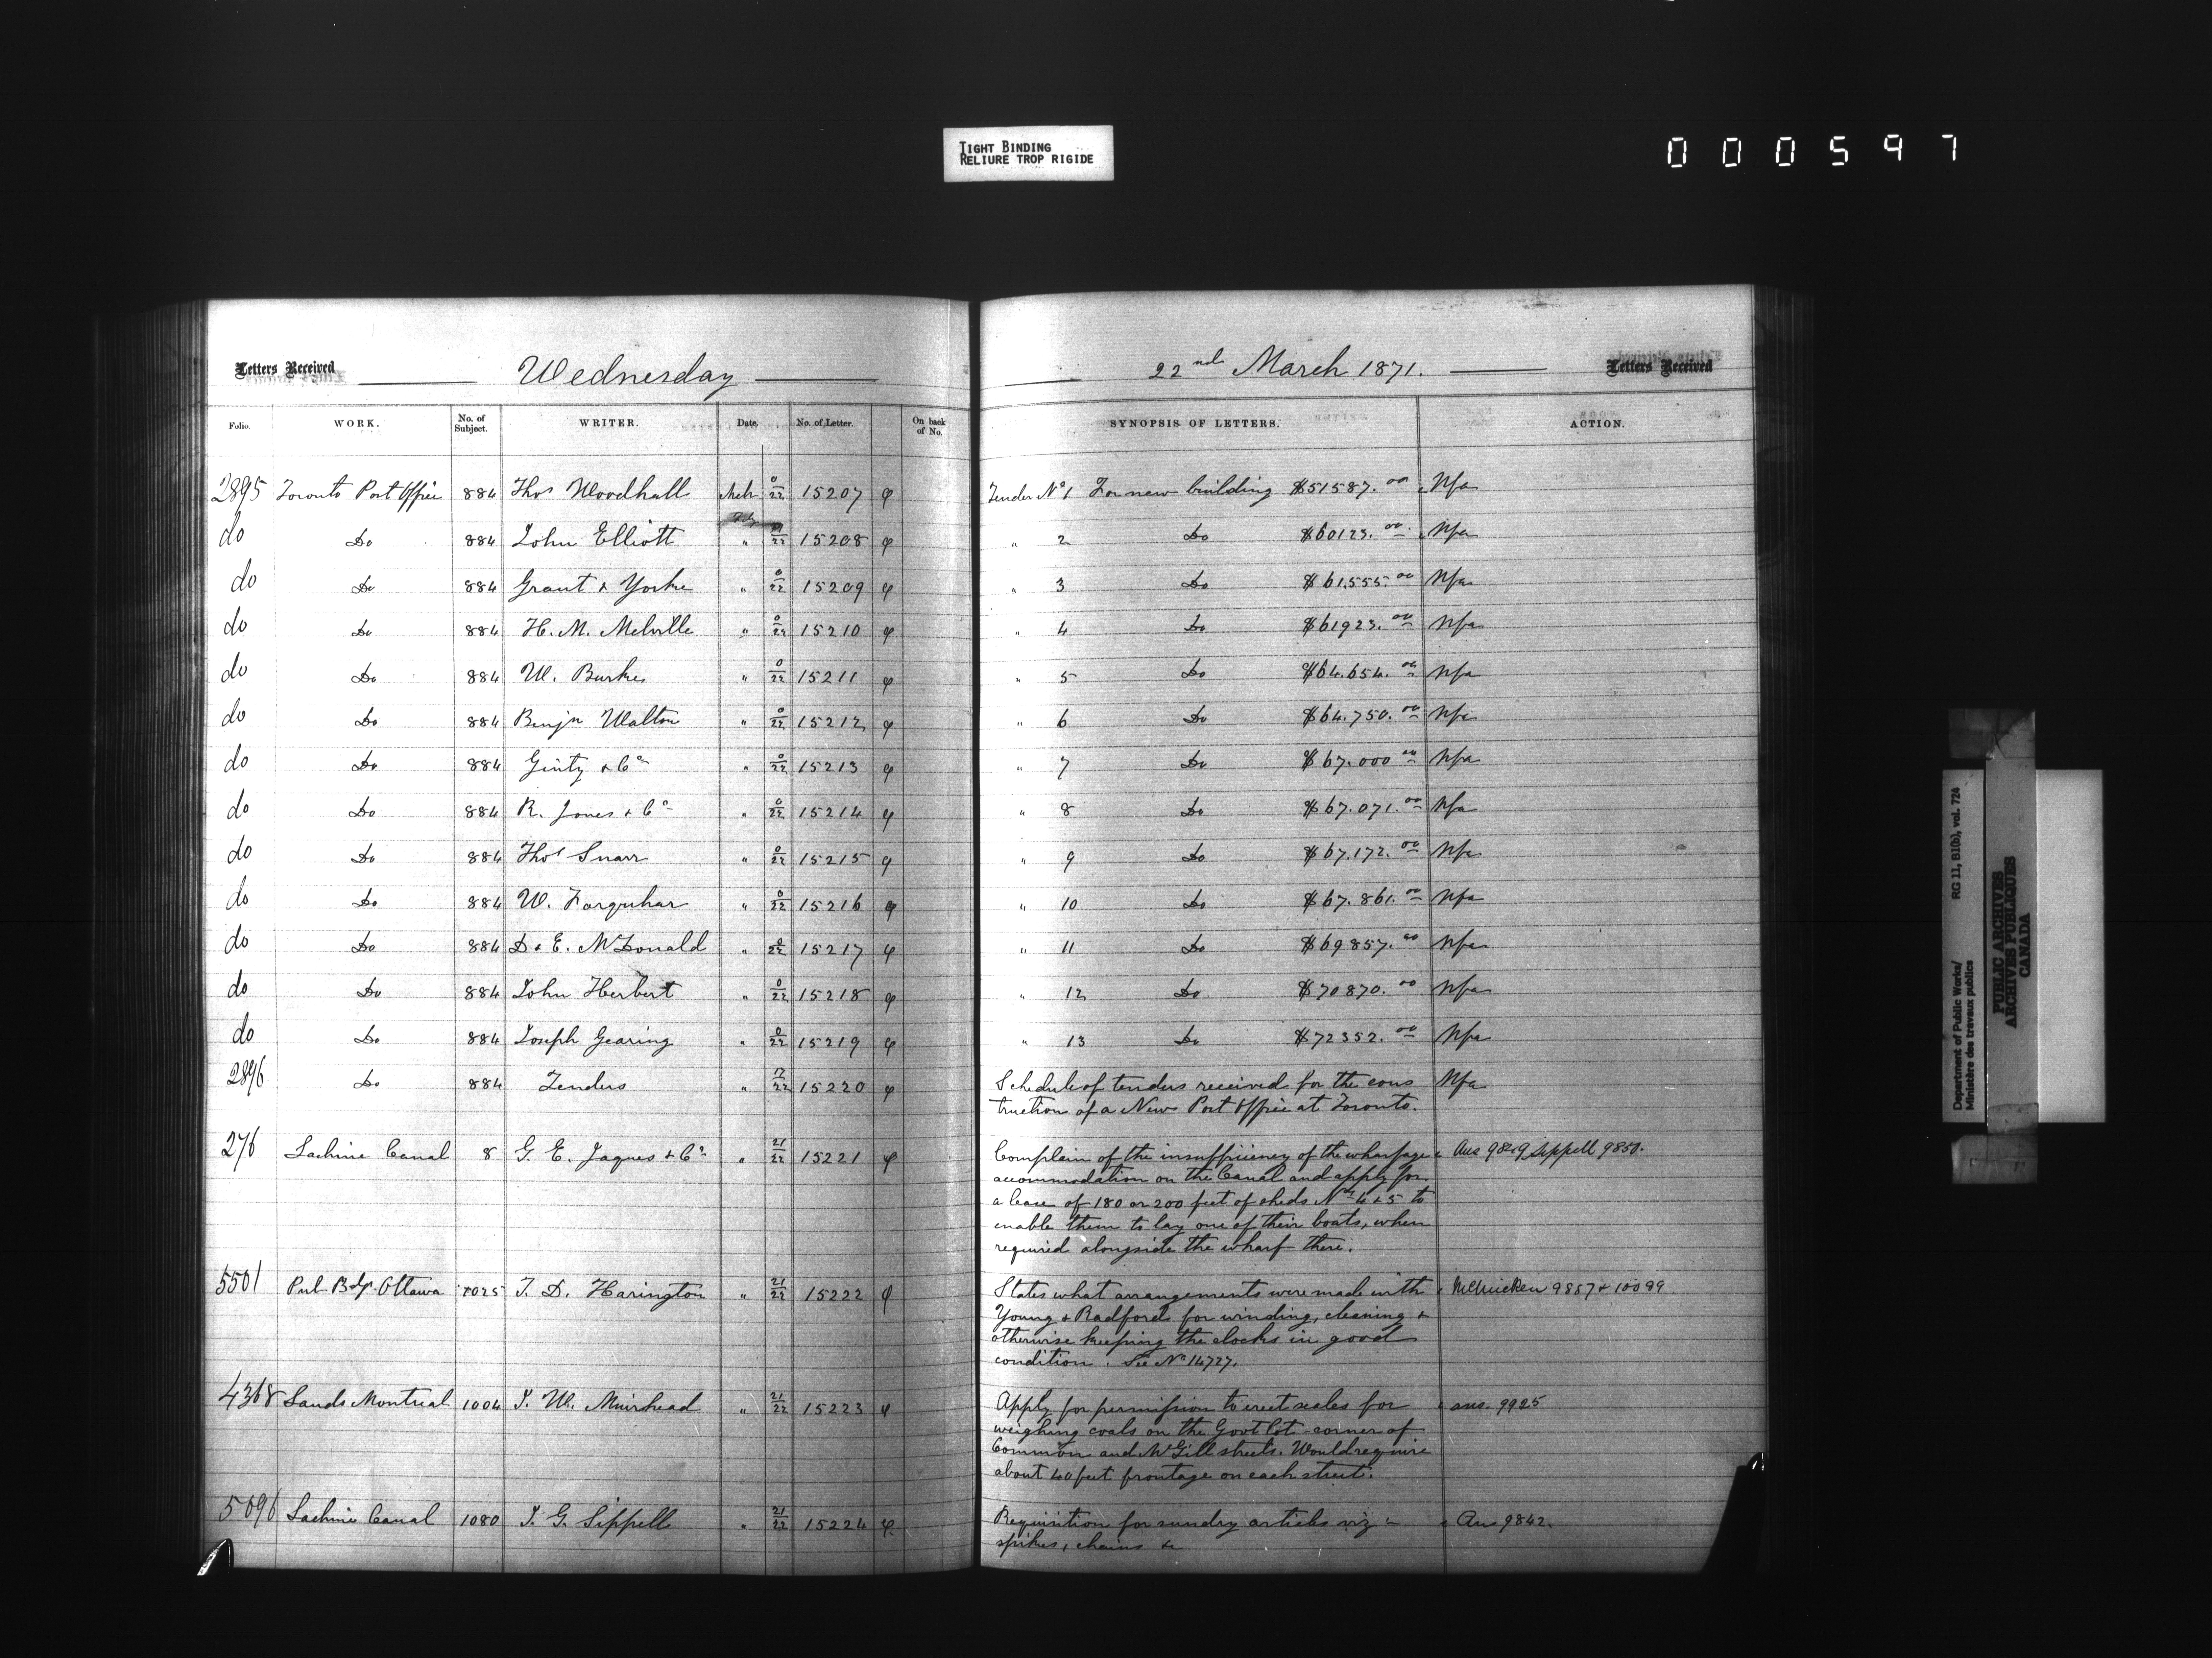 TIGHT BINDING
RELIURE TROP RIGIDE
000597
Letters Received Wednesday 22nd March 1871. Letters Received
Folio. WORK. No. of Subject. WRITER. Date. No. of Letter. On back of No. SYNOPSIS OF LETTERS. ACTION.
2895 Toronto Post Office 884 Thos Woodhall Mch 0/22 15207 φ Tender No 1 For new building $51587.00 Nfa
do Do 884 John Elliott " 22 15208 φ " 2 Do $60123.00 Nfa
do Do 884 Grant & Yorke " 0/22 15209 φ " 3 Do $61.555.00 Nfa
do Do 884 H. M. Melville " 0/22 15210 φ " 4 Do $61923.00 Nfa
do Do 884 W. Burke " 0/22 15211 φ " 5 Do $64.654.00 Nfa
do Do 884 Benjn Walton " 0/22 15212 φ " 6 Do $64.750.00 Nfa
do Do 884 Ginty & Co " 0/22 15213 φ " 7 Do $67.000 00 Nfa
do Do 884 R. Jones & Co " 0/22 15214 φ " 8 Do $67.071.00 Nfa
do Do 884 Thos Snarr " 0/22 15215 φ " 9 Do $67.172.00 Nfa
do Do 884 W. Farquhar " 0/22 15216 φ " 10 Do $67.861.00 Nfa
do Do 884 D. & E. McDonald " 0/22 15217 φ " 11 Do $69857.00 Nfa
do Do 884 John Herbert " 0/22 15218 φ " 12 Do $70870.00 Nfa
do Do 884 Joseph Gearing " 0/22 15219 φ " 13 Do $72352.00 Nfa
2896 Do 884 Tenders " 22 15220 φ Schedule of tenders received for the cons Nfa
truction of a New Post Office at Toronto.
276 Lachine Canal 8 G. E. Jaques & Co " 21/22 15221 φ Complain of the insufficiency of the wharfage Ans 9849 Sippell 9850.
accommodation on the Canal and apply for
a lease of 180 or 200 feet of sheds Nos 4 & 5 to
enable them to lay one of their boats, when
required alongside the wharf there.
5501 Pub. Bdgs. Ottawa 1025 T. D. Harington " 21/22 15222 φ States what arrangements were made with McMicken 9857 & 10099
Young & Radford for winding, cleaning &
otherwise keeping the clocks in good
condition. See No 14727.
4368 Lands Montreal 1004 J. W. Muirhead " 21/22 15223 φ Apply for permission to erect scales for ans. 9925
weighing coals on the Govt lot corner of
Common and McGill streets. Would require
about 40 feet frontage on each street.
5096 Lachine Canal 1080 J. G. Sippell " 21/22 15224 φ Requisition for sundry articles viz :- Ans 9842.
spikes, chains &c
Department of Public Works/ RG 11, B1(b), vol. 724
Ministère des travaux publics
PUBLIC ARCHIVES
ARCHIVES PUBLIQUES
CANADA